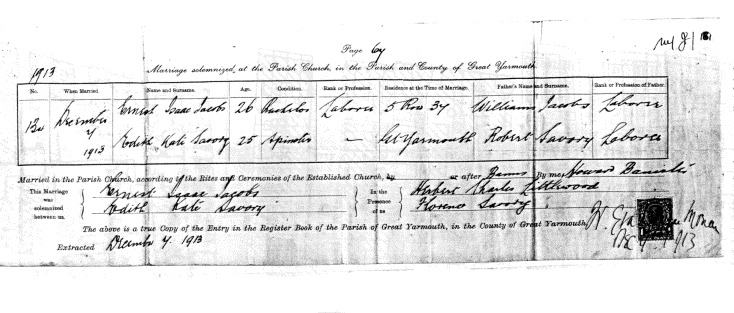 Page 67
1913 Marriage solemnized, at the Parish Church, in the Parish and County of Great Yarmouth
No. When Married Name and Surname. Age. Condition. Rank or Profession. Residence at the Time of Marriage. Father's Name and Surname. Rank or Profession of Father.
134 December 7 1913 Ernest Isaac Jacobs 26 Bachelor Laborer 5 Row 37 William Jacobs Laborer
Edith Kate Savory 25 Spinster — Gt Yarmouth Robert Savory Laborer
Married in the Parish Church, according to the Rites and Ceremonies of the Established Church, by or after Banns By me, Howard
This Marriage was solemnized between us, Ernest Isaac Jacobs In the Presence of us Herbert Charles Littlewood
Edith Kate Savory Florence Savory
The above is a true Copy of the Entry in the Register Book of the Parish of Great Yarmouth, in the County of Great Yarmouth,
Extracted December 7. 1913
1913